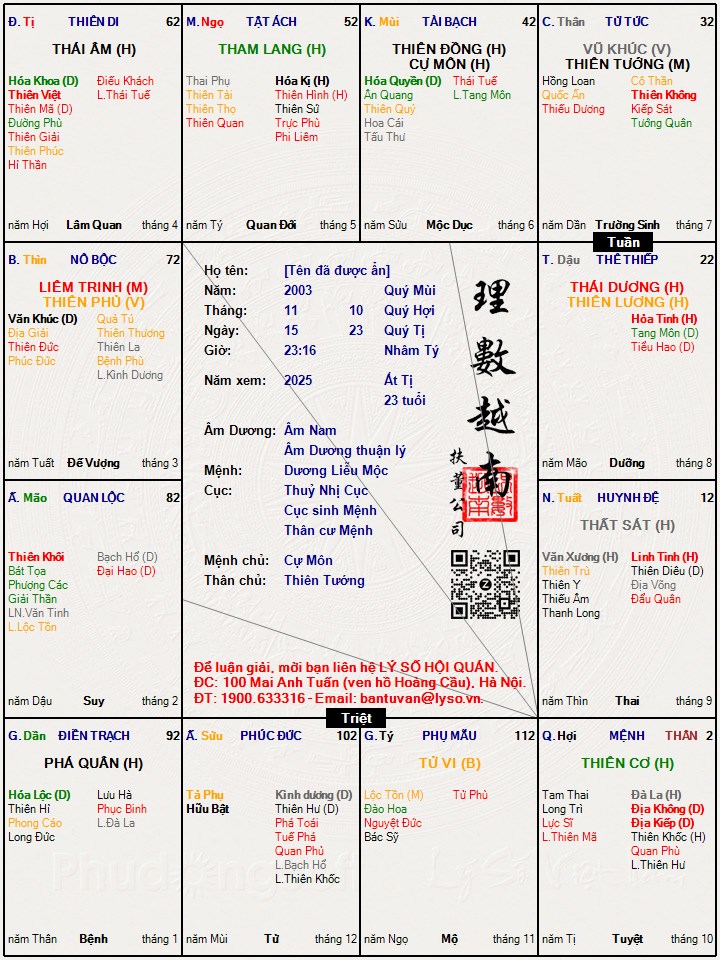 Đ. Tị THIÊN DI 62
THÁI ÂM (H)
Hóa Khoa (D) Điếu Khách
Thiên Việt L.Thái Tuế
Thiên Mã (D)
Đường Phù
Thiên Giải
Thiên Phúc
Hỉ Thần
năm Hợi Lâm Quan tháng 4
M. Ngọ TẬT ÁCH 52
THAM LANG (H)
Thai Phụ Hóa Kị (H)
Thiên Tài Thiên Hình (H)
Thiên Thọ Thiên Sứ
Thiên Quan Trực Phù
Phi Liêm
năm Tý Quan Đới tháng 5
K. Mùi TÀI BẠCH 42
THIÊN ĐỒNG (H)
CỰ MÔN (H)
Hóa Quyền (D) Thái Tuế
Ân Quang L.Tang Môn
Thiên Quý
Hoa Cái
Tấu Thư
năm Sửu Mộc Dục tháng 6
C. Thân TỬ TỨC 32
VŨ KHÚC (V)
THIÊN TƯỚNG (M)
Hồng Loan Cô Thần
Quốc Ấn Thiên Không
Thiếu Dương Kiếp Sát
Tướng Quân
năm Dần Trường Sinh tháng 7
Tuần
B. Thìn NÔ BỘC 72
LIÊM TRINH (M)
THIÊN PHỦ (V)
Văn Khúc (D) Quả Tú
Địa Giải Thiên Thương
Thiên Đức Thiên La
Phúc Đức Bệnh Phù
L.Kình Dương
năm Tuất Đế Vượng tháng 3
Họ tên: [Tên đã được ẩn]
Năm: 2003 Quý Mùi
Tháng: 11 10 Quý Hợi
Ngày: 15 23 Quý Tị
Giờ: 23:16 Nhâm Tý
Năm xem: 2025 Ất Tị
23 tuổi
Âm Dương: Âm Nam
Âm Dương thuận lý
Mệnh: Dương Liễu Mộc
Cục: Thuỷ Nhị Cục
Cục sinh Mệnh
Thân cư Mệnh
Mệnh chủ: Cự Môn
Thân chủ: Thiên Tướng
理數越南
扶董公司
Để luận giải, mời bạn liên hệ LÝ SỐ HỘI QUÁN.
ĐC: 100 Mai Anh Tuấn (ven hồ Hoàng Cầu), Hà Nội.
ĐT: 1900.633316 - Email: bantuvan@lyso.vn.
T. Dậu THÊ THIẾP 22
THÁI DƯƠNG (H)
THIÊN LƯƠNG (H)
Hỏa Tinh (H)
Tang Môn (D)
Tiểu Hao (D)
năm Mão Dưỡng tháng 8
Ấ. Mão QUAN LỘC 82
Thiên Khôi Bạch Hổ (D)
Bát Tọa Đại Hao (D)
Phượng Các
Giải Thần
LN.Văn Tinh
L.Lộc Tồn
năm Dậu Suy tháng 2
N. Tuất HUYNH ĐỆ 12
THẤT SÁT (H)
Văn Xương (H) Linh Tinh (H)
Thiên Trù Thiên Diêu (D)
Thiên Y Địa Võng
Thiếu Âm Đẩu Quân
Thanh Long
năm Thìn Thai tháng 9
Triệt
G. Dần ĐIỀN TRẠCH 92
PHÁ QUÂN (H)
Hóa Lộc (D) Lưu Hà
Thiên Hỉ Phục Binh
Phong Cáo L.Đà La
Long Đức
năm Thân Bệnh tháng 1
Ấ. Sửu PHÚC ĐỨC 102
Tả Phụ Kình dương (D)
Hữu Bật Thiên Hư (D)
Phá Toái
Tuế Phá
Quan Phủ
L.Bạch Hổ
L.Thiên Khốc
năm Mùi Tử tháng 12
G. Tý PHỤ MẪU 112
TỬ VI (B)
Lộc Tồn (M) Tử Phù
Đào Hoa
Nguyệt Đức
Bác Sỹ
năm Ngọ Mộ tháng 11
Q. Hợi MỆNH THÂN 2
THIÊN CƠ (H)
Tam Thai Đà La (H)
Long Trì Địa Không (D)
Lực Sĩ Địa Kiếp (D)
L.Thiên Mã Thiên Khốc (H)
Quan Phù
L.Thiên Hư
năm Tị Tuyệt tháng 10